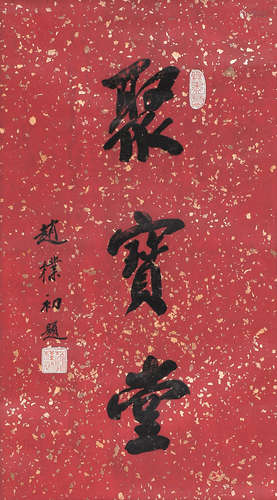 聚寶堂
趙樸初題